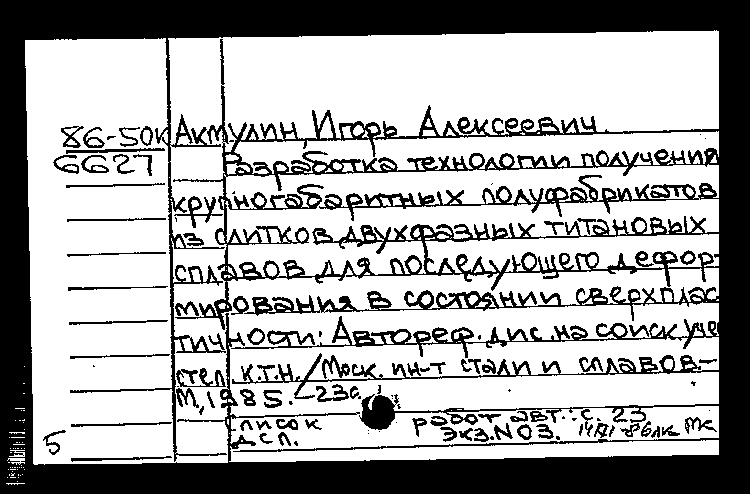 86-50к Актулин, Игорь Алексеевич.
6627 Разработка технологии получения
крупногабаритных полуфабрикатов
из слитков двухфазных титановых
сплавов для последующего дефор-
мирования в состоянии сверхплас
тичности: Автореф. дис. на соиск. уче
степ. к.т.н. / Моск. ин-т стали и сплавов.-
М., 1985. - 23с.
Список работ авт.: с. 23
ДСП. Экз. N03.
5